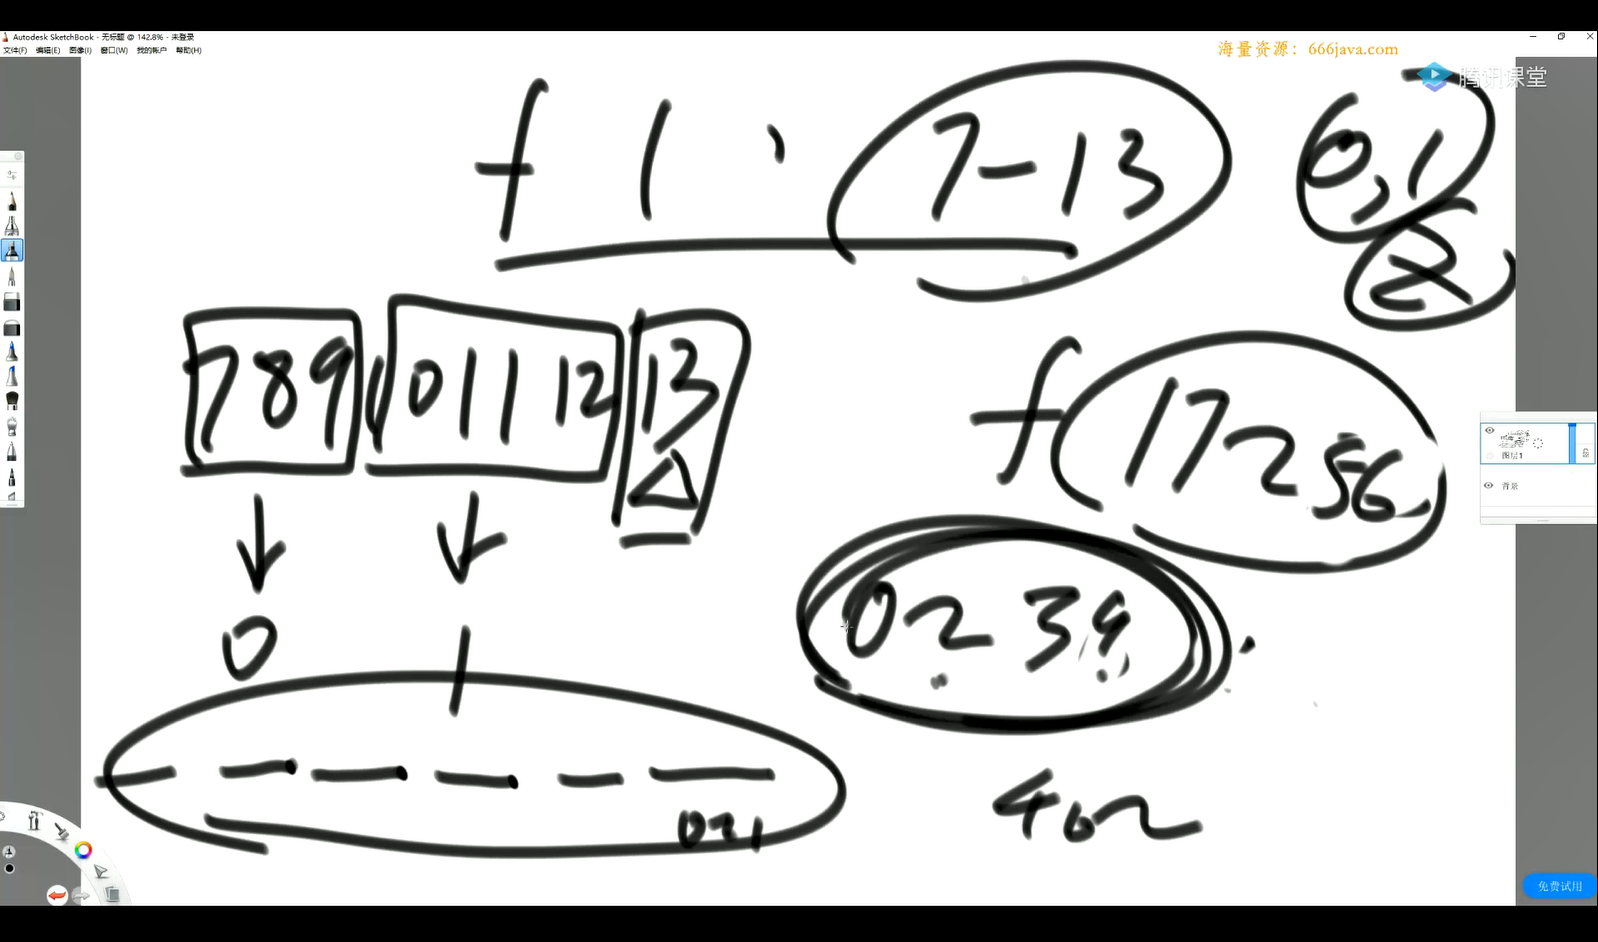 Autodesk SketchBook - 无标题 @ 142.8% - 未登录
文件(F) 编辑(E) 图像(I) 窗口(W) 我的帐户 帮助(H)
海量资源：666java.com
腾讯课堂
f 1 , 7-13
0,1
2
7 8 9 10 11 12 13
f 17 2 56
0 1
02 39
021
402
图层1
背景
免费试用